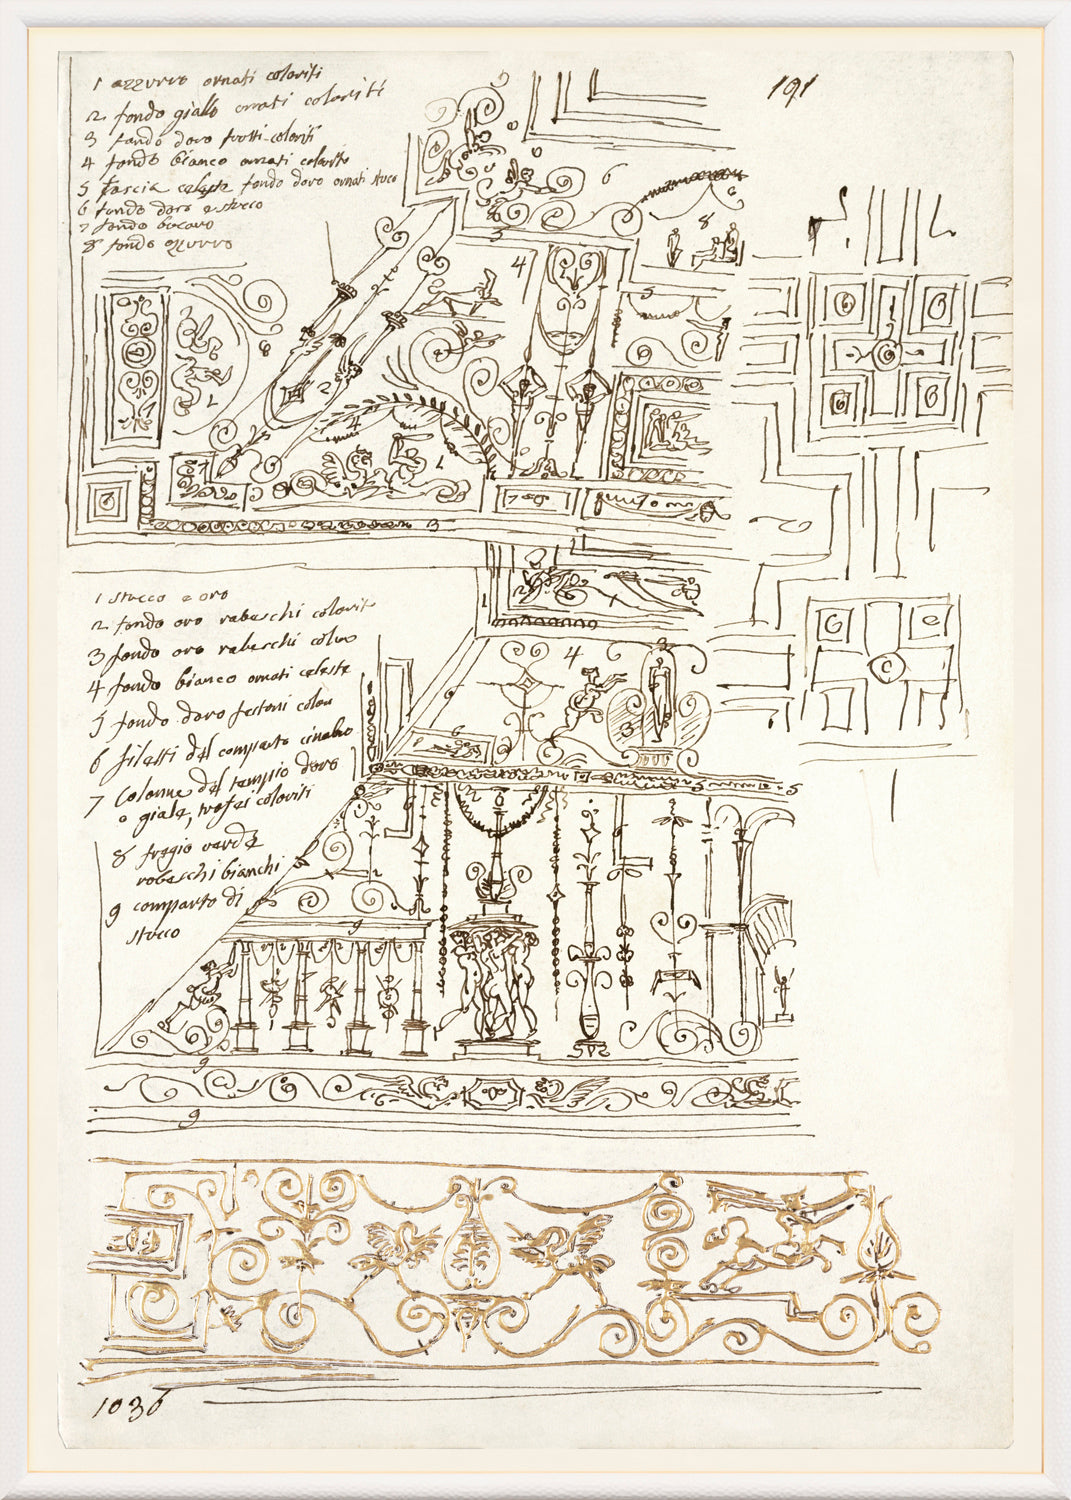 1 azzurro ornati coloriti
2 fondo giallo ornati coloriti
3 fondo doro frotti coloriti
4 fondo bianco ornati colorito
5 fascia celeste fondo doro ornati stuco
6 fondo doro e stuco
7 fondo
8 fondo azzurro
191
1 stucco e oro
2 fondo oro rabeschi colorit
3 fondo oro rabeschi
4 fondo bianco ornati celeste
5 fondo doro festoni
6 filetti del comparto
7 Colonne del tempio doro
o giale, trofei coloriti
8 fregio verde
rabeschi bianchi
9 comparto di
stuco
1036